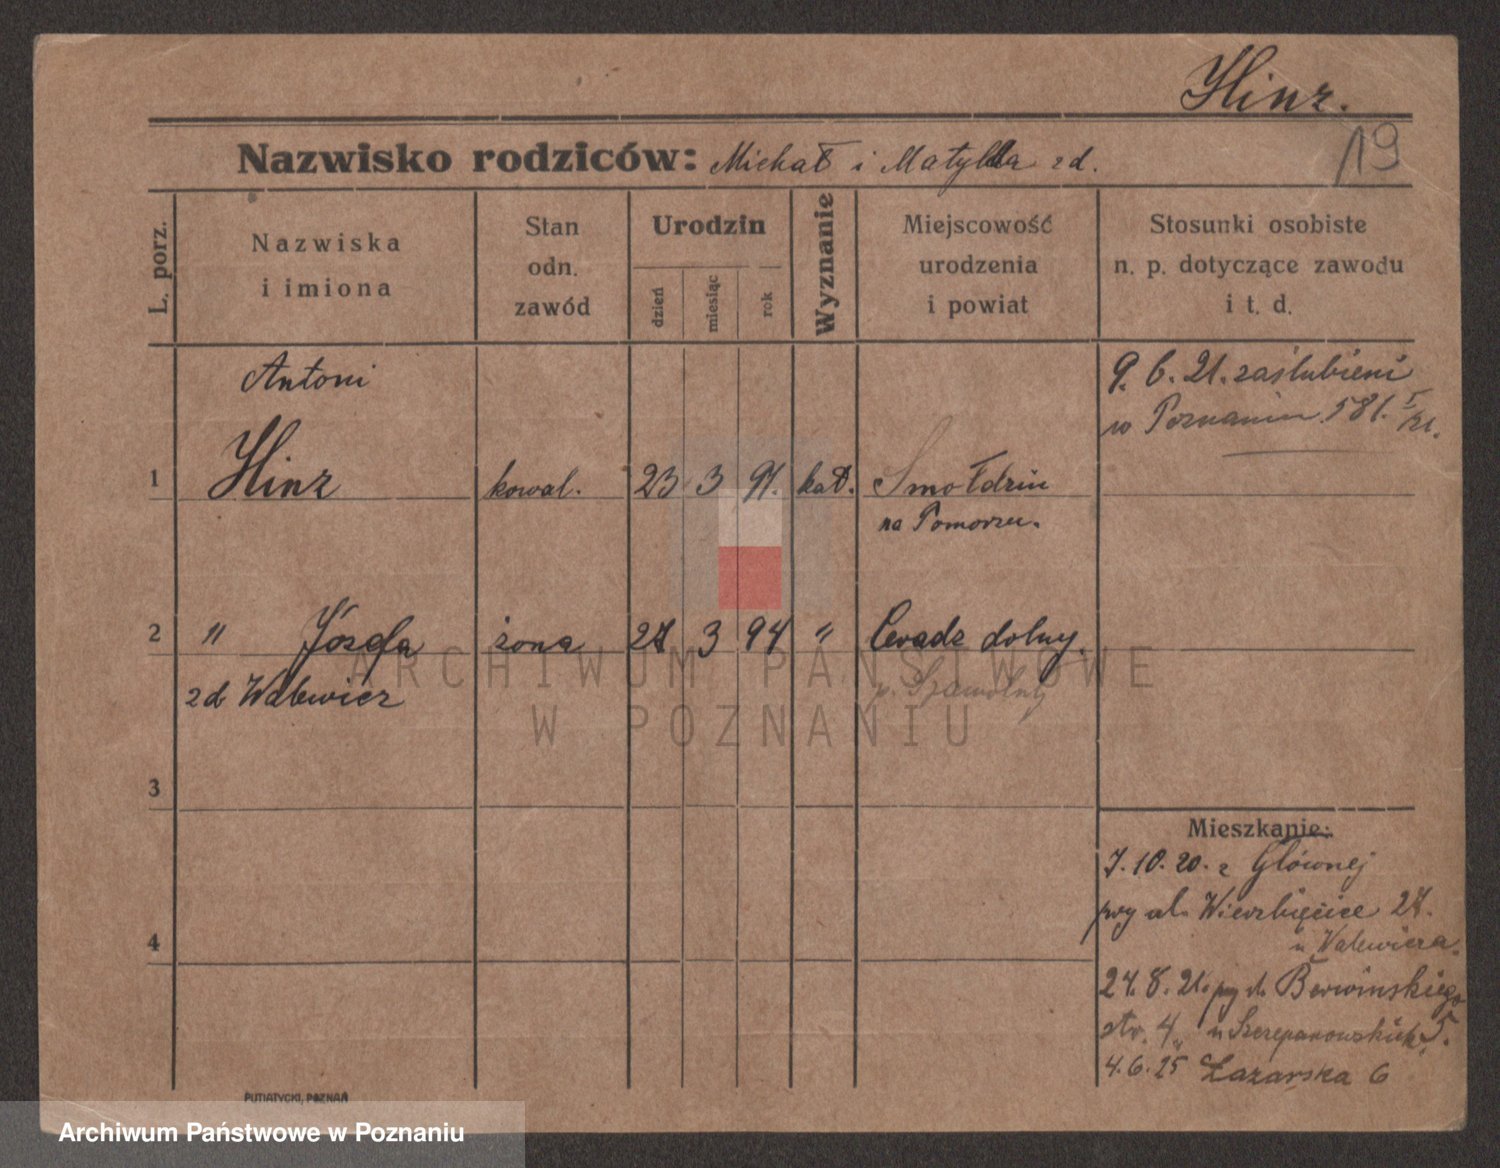 Hinz.
19
Nazwisko rodziców: Michał i Matylda zd.
L. porz.
Nazwiska
i imiona
Stan
odn.
zawód
Urodzin
dzień
miesiąc
rok
Wyznanie
Miejscowość
urodzenia
i powiat
Stosunki osobiste
n. p. dotyczące zawodu
i t. d.
Antoni
1 Hinz kowal. 23 3 91. kat. Smołdzin
na Pomorzu.
9. 6. 21. zaślubieni
w Poznaniu 581. I/21.
2 " Józefa żona 27 3 94 " Ceradz dolny.
zd Walewicz p. Szamotuły
3
4
Mieszkanie:
7. 10. 20. z Głównej
przy ul. Wierzbięcice 27.
u Walewicza.
24. 8. 21. przy ul. Berwińskiego
str. 4, u Szczepanowskich, 5.
4. 6. 25 Łazarska 6
PUTIATYCKI, POZNAŃ
ARCHIWUM PAŃSTWOWE
W POZNANIU
Archiwum Państwowe w Poznaniu